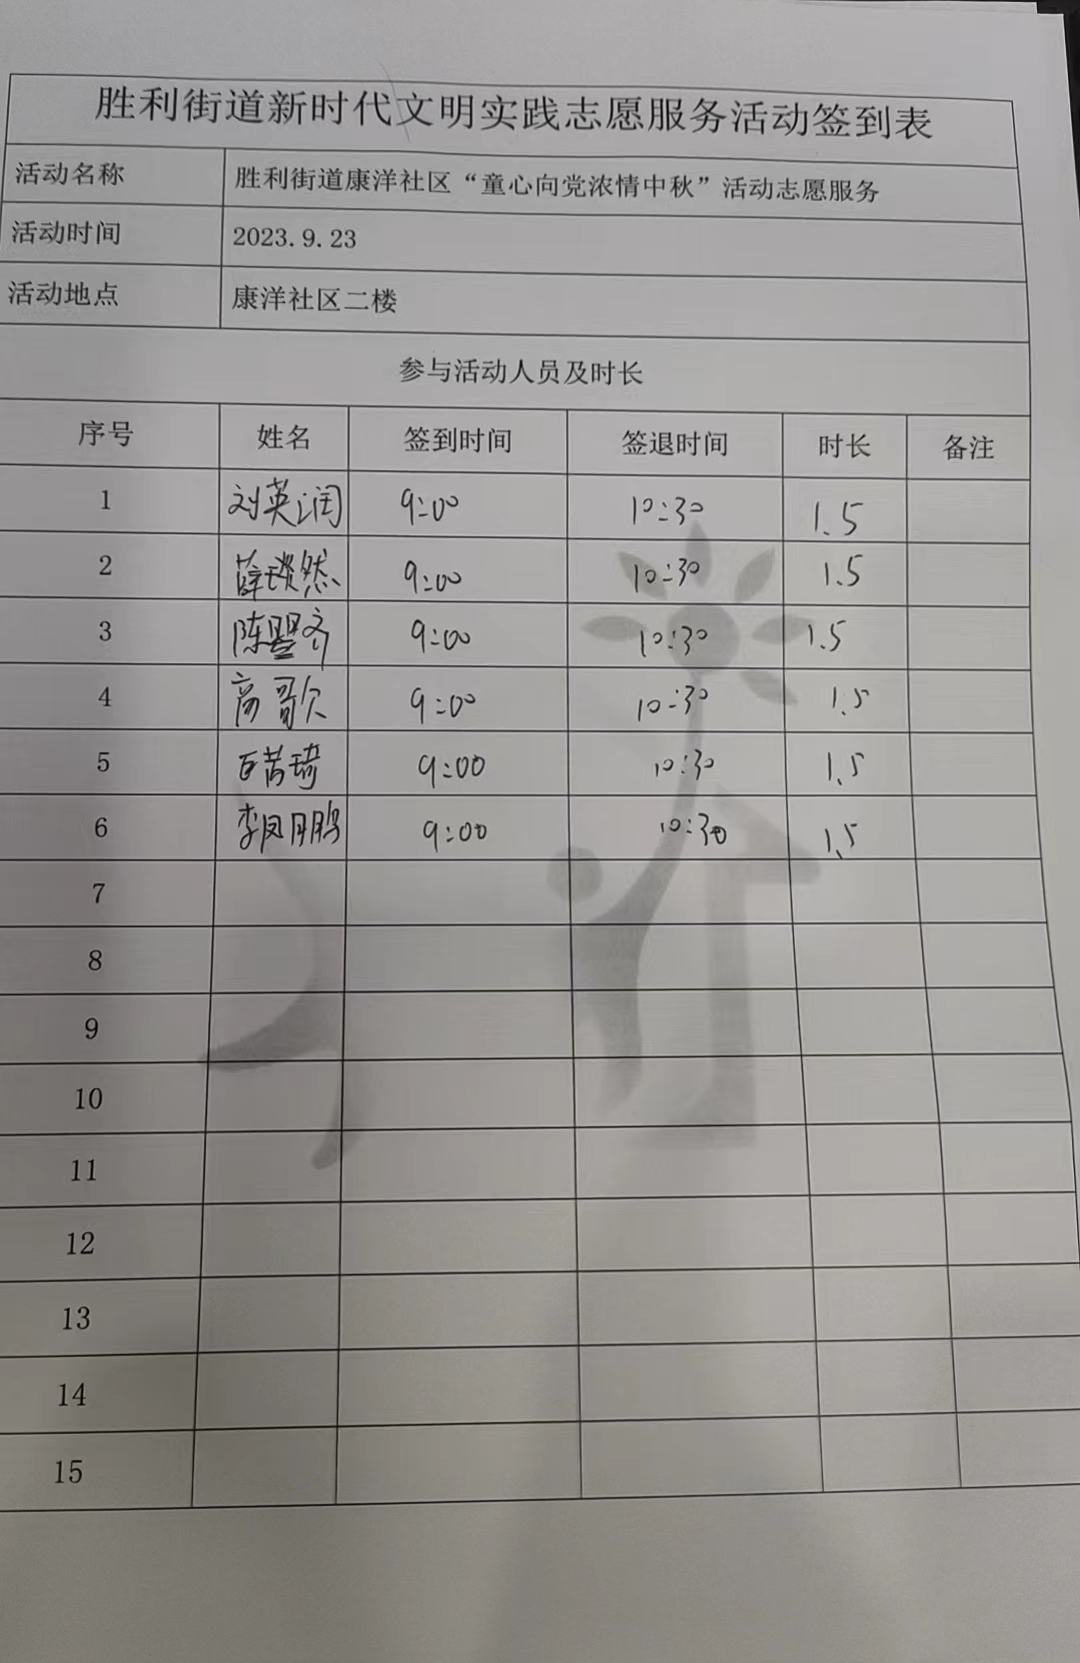 胜利街道新时代文明实践志愿服务活动签到表
活动名称 胜利街道康洋社区“童心向党浓情中秋”活动志愿服务
活动时间 2023.9.23
活动地点 康洋社区二楼
参与活动人员及时长
序号 姓名 签到时间 签退时间 时长 备注
1 刘英润 9:00 10:30 1.5
2 薛琰然 9:00 10:30 1.5
3 陈曌齐 9:00 10:30 1.5
4 高歌 9:00 10:30 1.5
5 9:00 10:30 1.5
6 李凤鹏 9:00 10:30 1.5
7
8
9
10
11
12
13
14
15